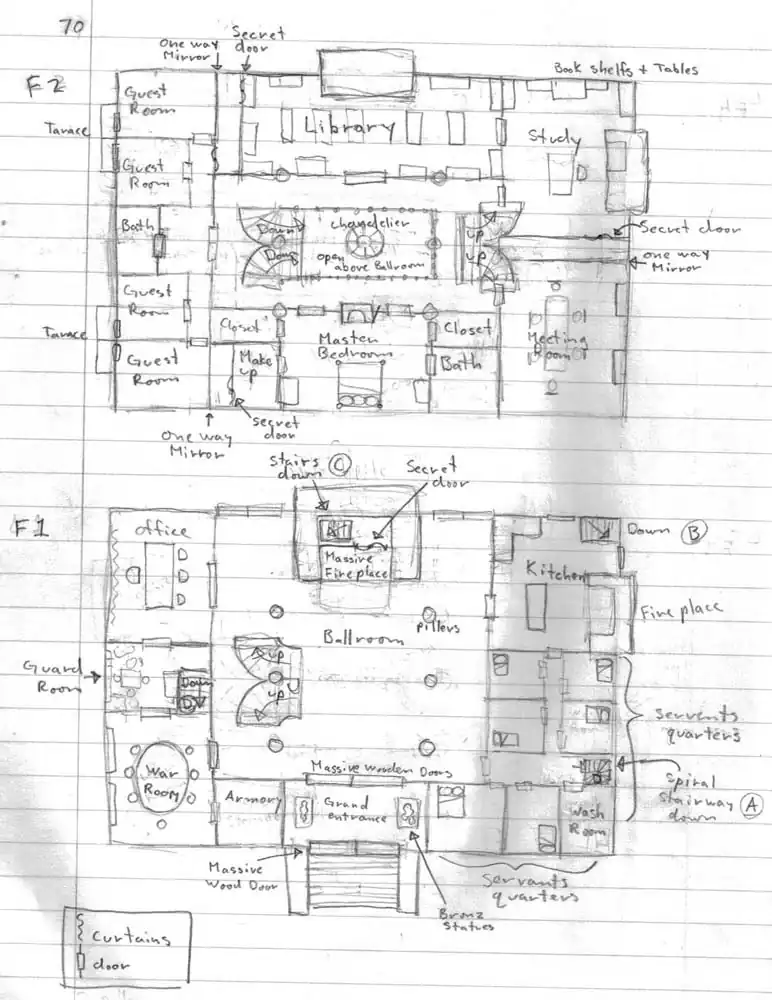 70
One way
Mirror
Secret
door
F2
Book shelfs + Tables
Guest
Room
Library
Study
Tarace
Guest
Room
Bath
Down
Down
chandelier
open
above Ballroom
up
up
Secret door
one way
Mirror
Guest
Room
Tarace
Closet
Master
Bedroom
Closet
Meeting
Room
Guest
Room
Make
up
Bath
One way
Mirror
Secret
door
Stairs
down C
Secret
door
F1
office
Massive
Fireplace
Kitchen
Down B
Fire place
Ballroom
pillers
Guard
Room
Down
D
up
up
Servants
quarters
War
Room
Massive wooden Doors
Armory
Grand
entrance
Wash
Room
Spiral
Stairway
down A
Massive
Wood Door
Servants
quarters
Bronz
Statues
Curtains
door